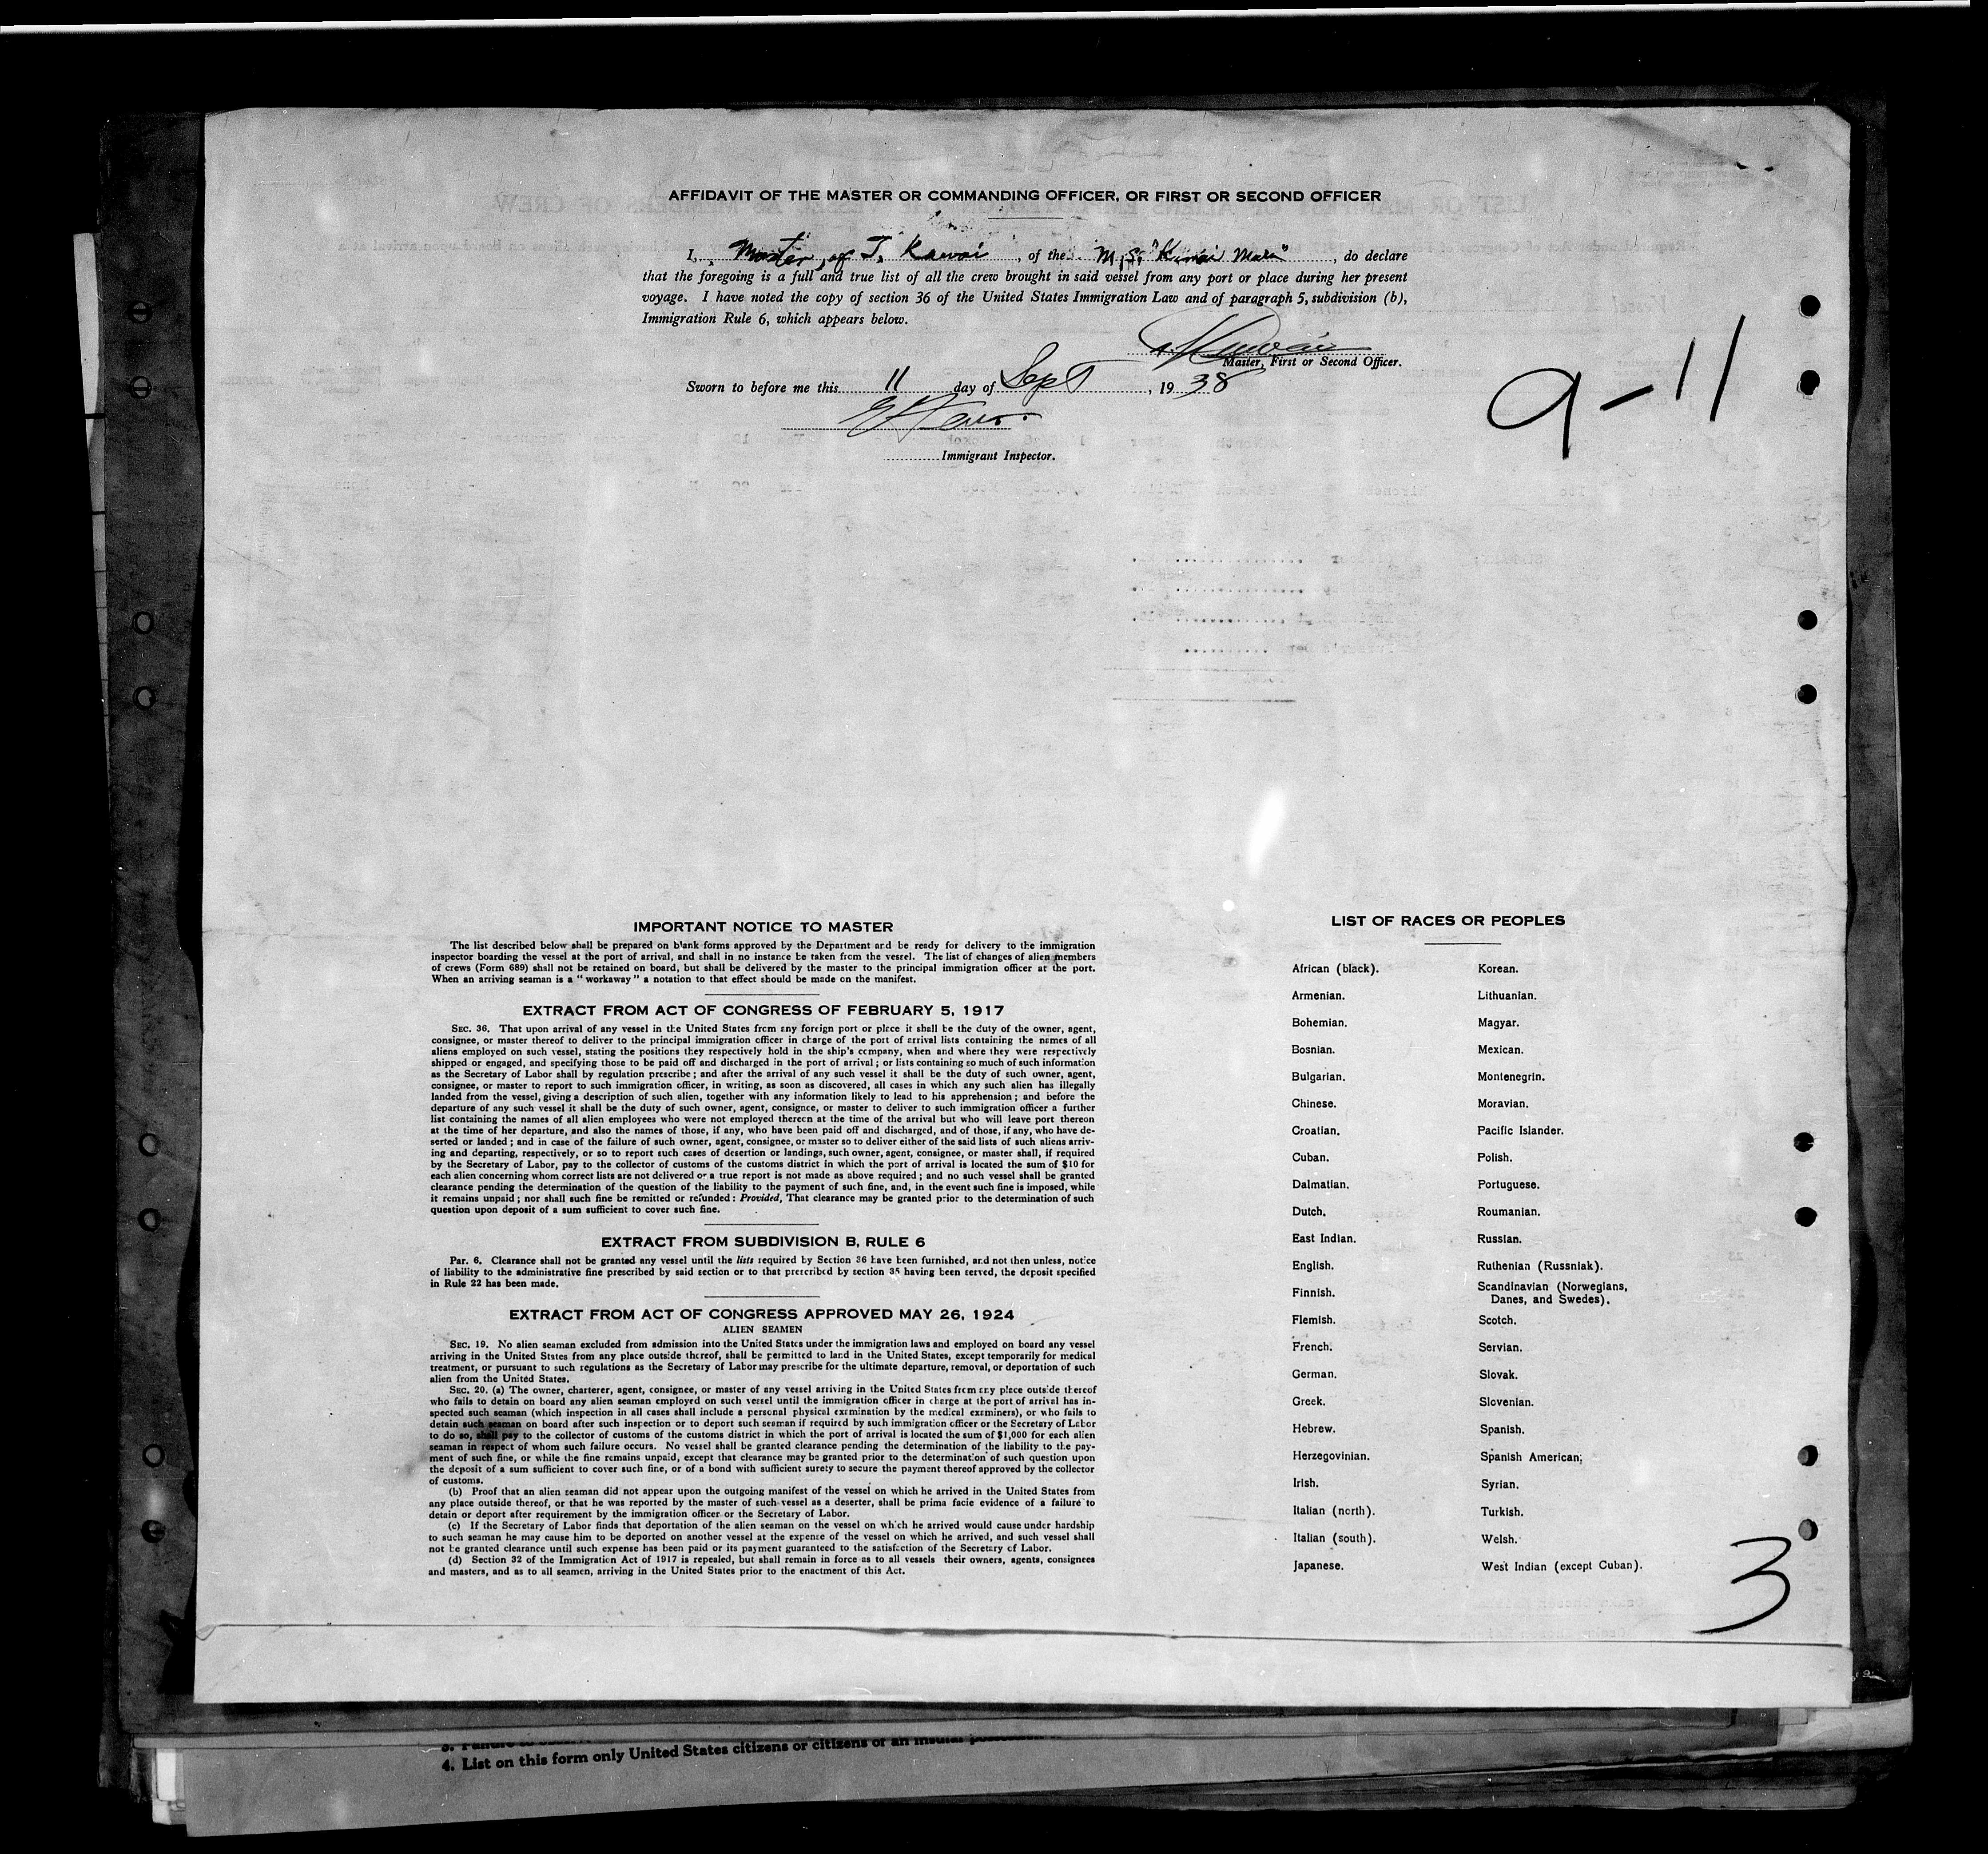 AFFIDAVIT OF THE MASTER OR COMMANDING OFFICER, OR FIRST OR SECOND OFFICER
I, Master, of T. Kawai, of the M.S. "Kinai Maru", do declare
that the foregoing is a full and true list of all the crew brought in said vessel from any port or place during her present
voyage. I have noted the copy of section 36 of the United States Immigration Law and of paragraph 5, subdivision (b),
Immigration Rule 6, which appears below.
Master, First or Second Officer.
Sworn to before me this 11 day of Sept, 1938
Immigrant Inspector.
9-11
IMPORTANT NOTICE TO MASTER
The list described below shall be prepared on blank forms approved by the Department and be ready for delivery to the immigration
inspector boarding the vessel at the port of arrival, and shall in no instance be taken from the vessel. The list of changes of alien members
of crews (Form 689) shall not be retained on board, but shall be delivered by the master to the principal immigration officer at the port.
When an arriving seaman is a "workaway" a notation to that effect should be made on the manifest.
EXTRACT FROM ACT OF CONGRESS OF FEBRUARY 5, 1917
SEC. 36. That upon arrival of any vessel in the United States from any foreign port or place it shall be the duty of the owner, agent,
consignee, or master thereof to deliver to the principal immigration officer in charge of the port of arrival lists containing the names of all
aliens employed on such vessel, stating the positions they respectively hold in the ship's company, when and where they were respectively
shipped or engaged, and specifying those to be paid off and discharged in the port of arrival; or lists containing so much of such information
as the Secretary of Labor shall by regulation prescribe; and after the arrival of any such vessel it shall be the duty of such owner, agent,
consignee, or master to report to such immigration officer, in writing, as soon as discovered, all cases in which any such alien has illegally
landed from the vessel, giving a description of such alien, together with any information likely to lead to his apprehension; and before the
departure of any such vessel it shall be the duty of such owner, agent, consignee, or master to deliver to such immigration officer a further
list containing the names of all alien employees who were not employed thereon at the time of the arrival but who will leave port thereon
at the time of her departure, and also the names of those, if any, who have been paid off and discharged, and of those, if any, who have de-
serted or landed; and in case of the failure of such owner, agent, consignee, or master so to deliver either of the said lists of such aliens arriv-
ing and departing, respectively, or so to report such cases of desertion or landings, such owner, agent, consignee, or master shall, if required
by the Secretary of Labor, pay to the collector of customs of the customs district in which the port of arrival is located the sum of $10 for
each alien concerning whom correct lists are not delivered or a true report is not made as above required; and no such vessel shall be granted
clearance pending the determination of the question of the liability to the payment of such fine, and, in the event such fine is imposed, while
it remains unpaid; nor shall such fine be remitted or refunded: Provided, That clearance may be granted prior to the determination of such
question upon deposit of a sum sufficient to cover such fine.
EXTRACT FROM SUBDIVISION B, RULE 6
Par. 6. Clearance shall not be granted any vessel until the lists required by Section 36 have been furnished, and not then unless, notice
of liability to the administrative fine prescribed by said section or to that prescribed by section 35 having been served, the deposit specified
in Rule 22 has been made.
EXTRACT FROM ACT OF CONGRESS APPROVED MAY 26, 1924
ALIEN SEAMEN
SEC. 19. No alien seaman excluded from admission into the United States under the immigration laws and employed on board any vessel
arriving in the United States from any place outside thereof, shall be permitted to land in the United States, except temporarily for medical
treatment, or pursuant to such regulations as the Secretary of Labor may prescribe for the ultimate departure, removal, or deportation of such
alien from the United States.
SEC. 20. (a) The owner, charterer, agent, consignee, or master of any vessel arriving in the United States from any place outside thereof
who fails to detain on board any alien seaman employed on such vessel until the immigration officer in charge at the port of arrival has in-
spected such seaman (which inspection in all cases shall include a personal physical examination by the medical examiners), or who fails to
detain such seaman on board after such inspection or to deport such seaman if required by such immigration officer or the Secretary of Labor
to do so, shall pay to the collector of customs of the customs district in which the port of arrival is located the sum of $1,000 for each alien
seaman in respect of whom such failure occurs. No vessel shall be granted clearance pending the determination of the liability to the pay-
ment of such fine, or while the fine remains unpaid, except that clearance may be granted prior to the determination of such question upon
the deposit of a sum sufficient to cover such fine, or of a bond with sufficient surety to secure the payment thereof approved by the collector
of customs.
(b) Proof that an alien seaman did not appear upon the outgoing manifest of the vessel on which he arrived in the United States from
any place outside thereof, or that he was reported by the master of such vessel as a deserter, shall be prima facie evidence of a failure to
detain or deport after requirement by the immigration officer or the Secretary of Labor.
(c) If the Secretary of Labor finds that deportation of the alien seaman on the vessel on which he arrived would cause under hardship
to such seaman he may cause him to be deported on another vessel at the expense of the vessel on which he arrived, and such vessel shall
not be granted clearance until such expense has been paid or its payment guaranteed to the satisfaction of the Secretary of Labor.
(d) Section 32 of the Immigration Act of 1917 is repealed, but shall remain in force as to all vessels their owners, agents, consignees
and masters, and as to all seamen, arriving in the United States prior to the enactment of this Act.
LIST OF RACES OR PEOPLES
African (black).
Armenian.
Bohemian.
Bosnian.
Bulgarian.
Chinese.
Croatian.
Cuban.
Dalmatian.
Dutch.
East Indian.
English.
Finnish.
Flemish.
French.
German.
Greek.
Hebrew.
Herzegovinian.
Irish.
Italian (north).
Italian (south).
Japanese.
Korean.
Lithuanian.
Magyar.
Mexican.
Montenegrin.
Moravian.
Pacific Islander.
Polish.
Portuguese.
Roumanian.
Russian.
Ruthenian (Russniak).
Scandinavian (Norwegians,
Danes, and Swedes).
Scotch.
Servian.
Slovak.
Slovenian.
Spanish.
Spanish American.
Syrian.
Turkish.
Welsh.
West Indian (except Cuban).
3
4. List on this form only United States citizens or citizens of an insular